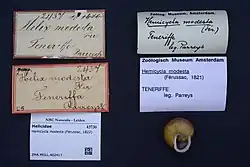 2437
Helix modesta
Fér
Teneriffe
Parreyss
2437
Helix modesta
Fér
Teneriffa
Parreyss
NBC Naturalis - Leiden
Helicidae
Hemicycla modesta (Férussac, 1821)
Zoöl. Museum, Amsterdam.
Hemicycla modesta
(Fér.)
Teneriffe
leg. Parreys
Zoologisch Museum Amsterdam
Hemicycla modesta
(Férussac, 1821)
TENERIFFE
leg. Parreys